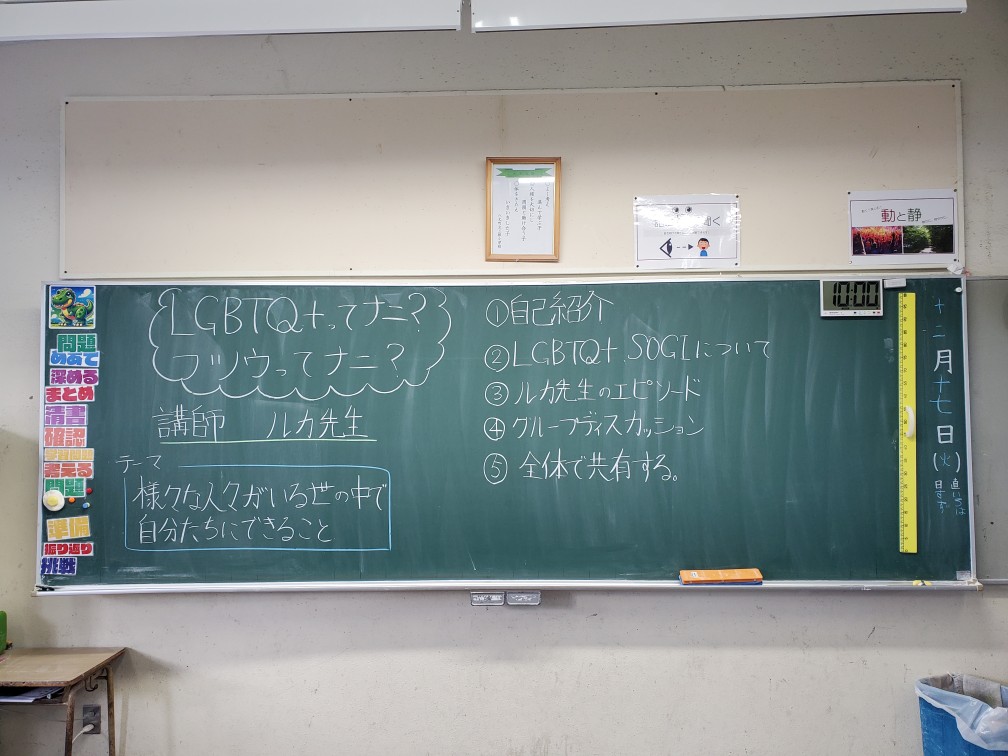 LGBTQ+ってナニ?
フツウってナニ?
講師 ルカ先生
テーマ
様々な人々がいる世の中で
自分たちにできること
①自己紹介
②LGBTQ+、SOGIについて
③ルカ先生のエピソード
④グループディスカッション
⑤全体で共有する。
10:00
十二月十七日(火)
動と静
問題
めあて
深める
まとめ
清書
確認
学習問題
考える
問題
準備
振り返り
挑戦